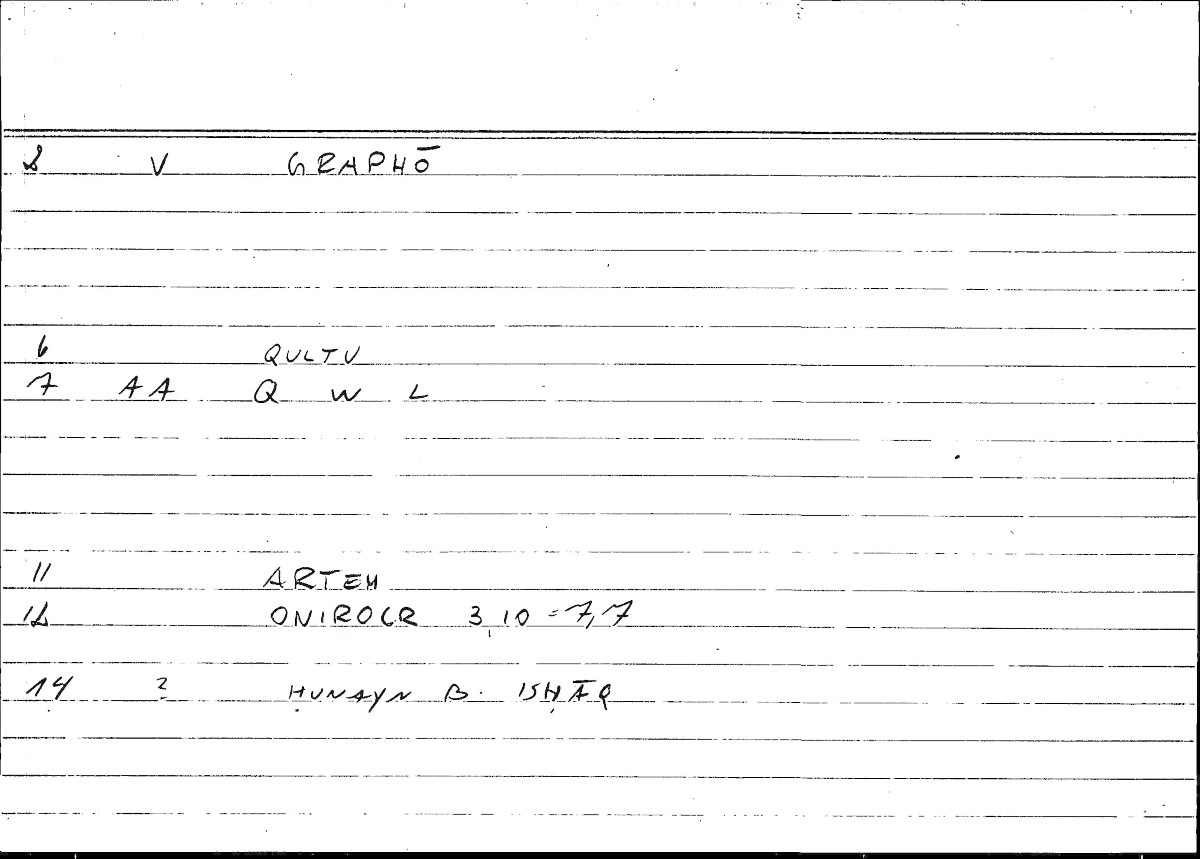 2 V GRAPHŌ
6 QULTU
7 AA Q W L
11 ARTEM
12 ONIROCR 3,10 = 7,7
14 2 ḤUNAYN B. ISḤĀQ